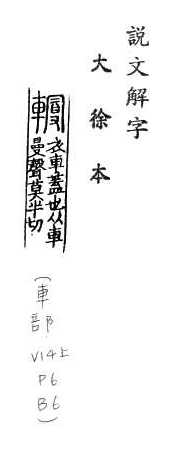 說文解字
大徐本
䡬 衣車蓋也从車
曼聲莫半切
(車部
V14上
P6
B6)